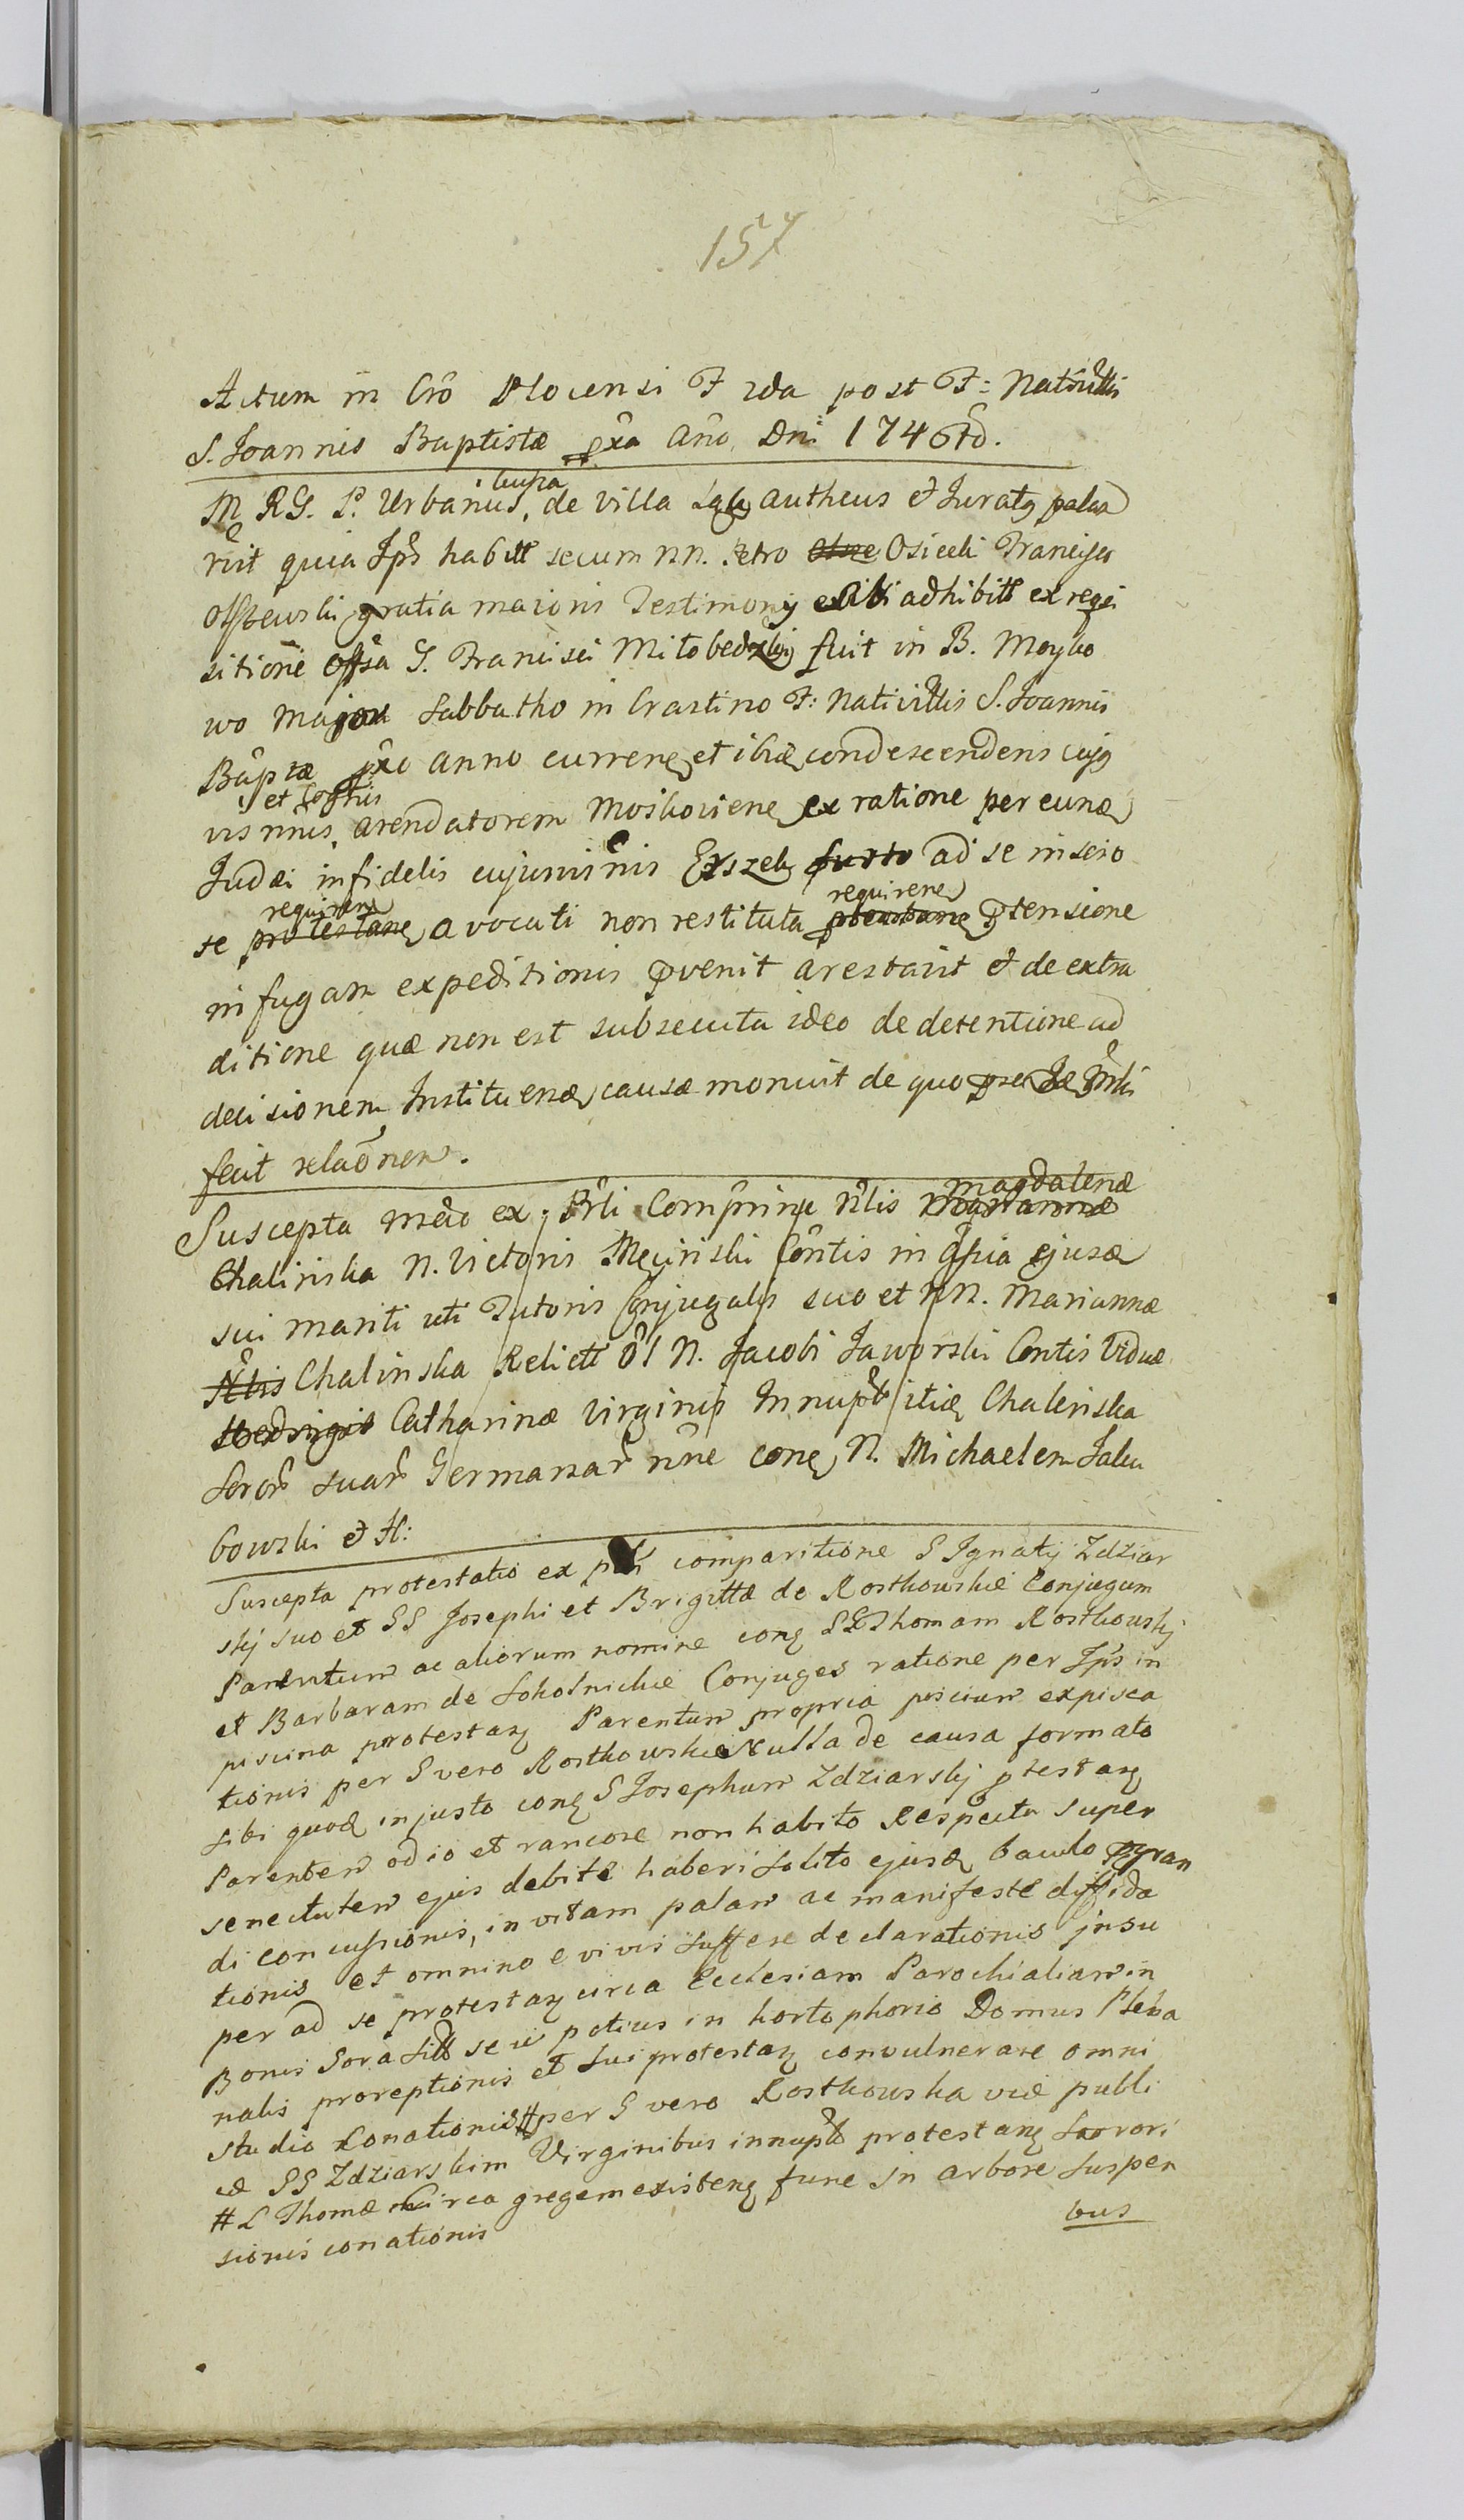 157
Actum in Crô Plocensi F 2da post F: Nativittis
S. Joannis Baptistæ pxa Año Dni 1746to.
M RG. P. Urbanus, de villa Autheus et Juratq palam
rvit quia Ips habitt secum NN. Petro Osiecki Francisco
Olszewski gratia maioris Testimonij sibi adhibitt ex requi
sitione G. Francisci Milobedzkij fuit in B. Moyko
wo major Sabbatho in Crastino F: Nativittis S. Joannis
Bâptæ pxo anno currene et ibiæ condescendens cujq
et Cogñis
vis nñis, arendatorem Moskoviene ex ratione per eunæ
Judæi infidelis cujusvis ñis Erszek furto ad se in scio
requirene requirene
te protestane avocati non restituta ptensione
in fugam expeditionis pvenit arestavit et de extra
ditione quæ non est subsecuta ideo de detentione ad
decisionem Instituenæ causæ monuit de quo
fecit relaõnem.
magdalenæ
Suscepta ex Prli Comprine Nlis Mariannæ
Chalinska N. Victoris Męcinski Contis in ejusæ
sui mariti uti Tutoris Conjugalis suo et NN. Mariannæ
Nlis Chalinska Relictt Ol N. Jacobi Jaworski Contis Viduæ
Hedvigis Catharinæ Virginis Innupt itiæ Chalinska
Soror suar Germanar nñe cone N. Michaelem Jaku
bowski et H:
Suscepta protestatio ex comparitione S Ignatij Zdziar
skij suo et SS Josephi et Brigittæ de Rostkowskie Conjugum
Parentum ac aliorum nomine cong SS Thomam Rostkowskij
et Barbaram de Sokolnickie Conjuges ratione per Ips in
piscina protestang Parentum propria piscium expisca
tionis per S vero Rostkowskie Nulla de causa formato
sibi quoæ injusto cong S Josephum Zdziarskij ptestang
Parentem odio et rancore non habito Respectu super
senectutem ejus debite haberi solito ejusæ baculo pgran
di concussionis, in vitam palam ac manifeste diffida
tionis et omnino e vivis declarationis insu
per ad se protestang circa Ecclesiam Parochialiam in
Bonis Gora sitt seu potius in horto phorio Domus Pleba
nalis proreptionis et sui protestang convulnerare omni
studio Conationis # per S vero Rostkowska viæ publi
cæ SS Zdziarskim Virginibus innupt protestang Sorori
# L Thomæ Circa gregem existeng fune in arbore Suspen
bus
sionis conationis